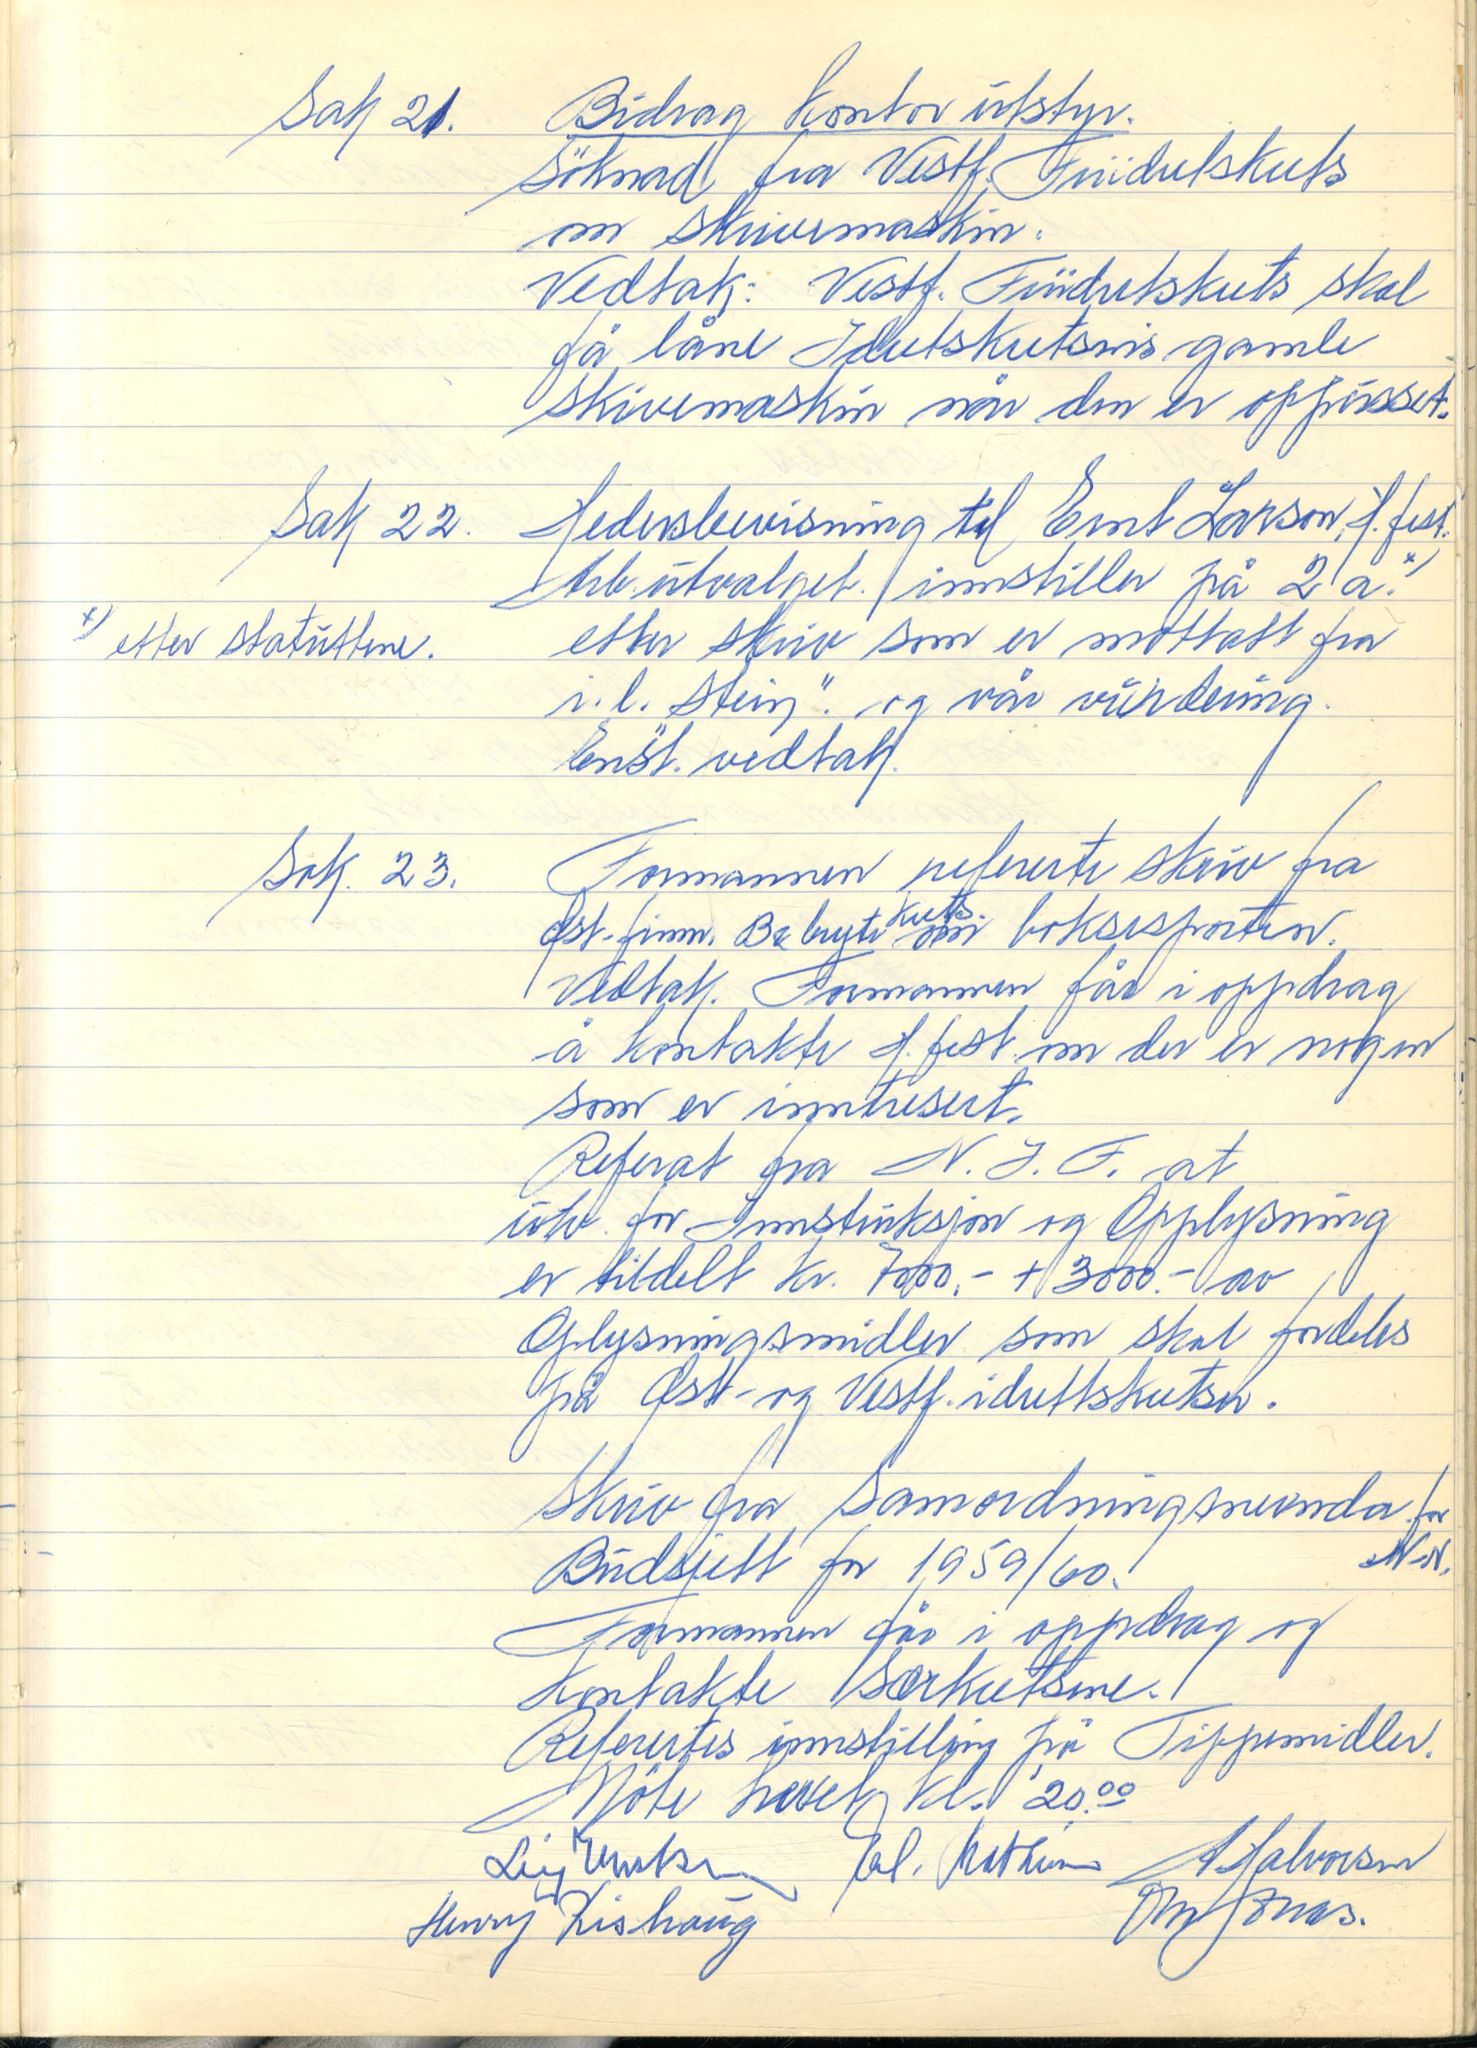 Sak 21. Bidrag kontor utstyr.
Söknad fra Vestf. Friidretskrets
om skrivemaskin.
Vedtak: Vestf. Friidretskrets skal
få låne Idretskretsens gamle
skrivemaskin når den er oppusset.
Sak 22. Hedersbevisning til Emil Larson, H.fest.
Arb. utvalget innstiller på 2 a. x)
x) etter statuttene. etter skriv som er mottatt fra
i.l. "Stein" og vår vurdering.
Enst. vedtak.
Sak. 23. Formannen refererte skriv fra
Öst-finnm. Bryte krets. om boksesporten.
Vedtak. Formannen får i oppdrag
å kontakte H.fest om der er nogen
som er inntresert.
Referat fra N. I. F. at
utv. for Instruksjon og Opplysning
er tildelt kr. 7000.- + 3000.- av
Oplysningsmidler som skal fordeles
på Öst- og Vestf. idrettskretser.
Skriv fra Samordningsnevnda for
Budsjett for 1959/60. N-N.
Formannen får i oppdrag og
kontakte særkretsene.
Referertes innstilling på Tippemidler.
Möte hevet kl. 20.00
A Halvorsen
Henry Rishaug